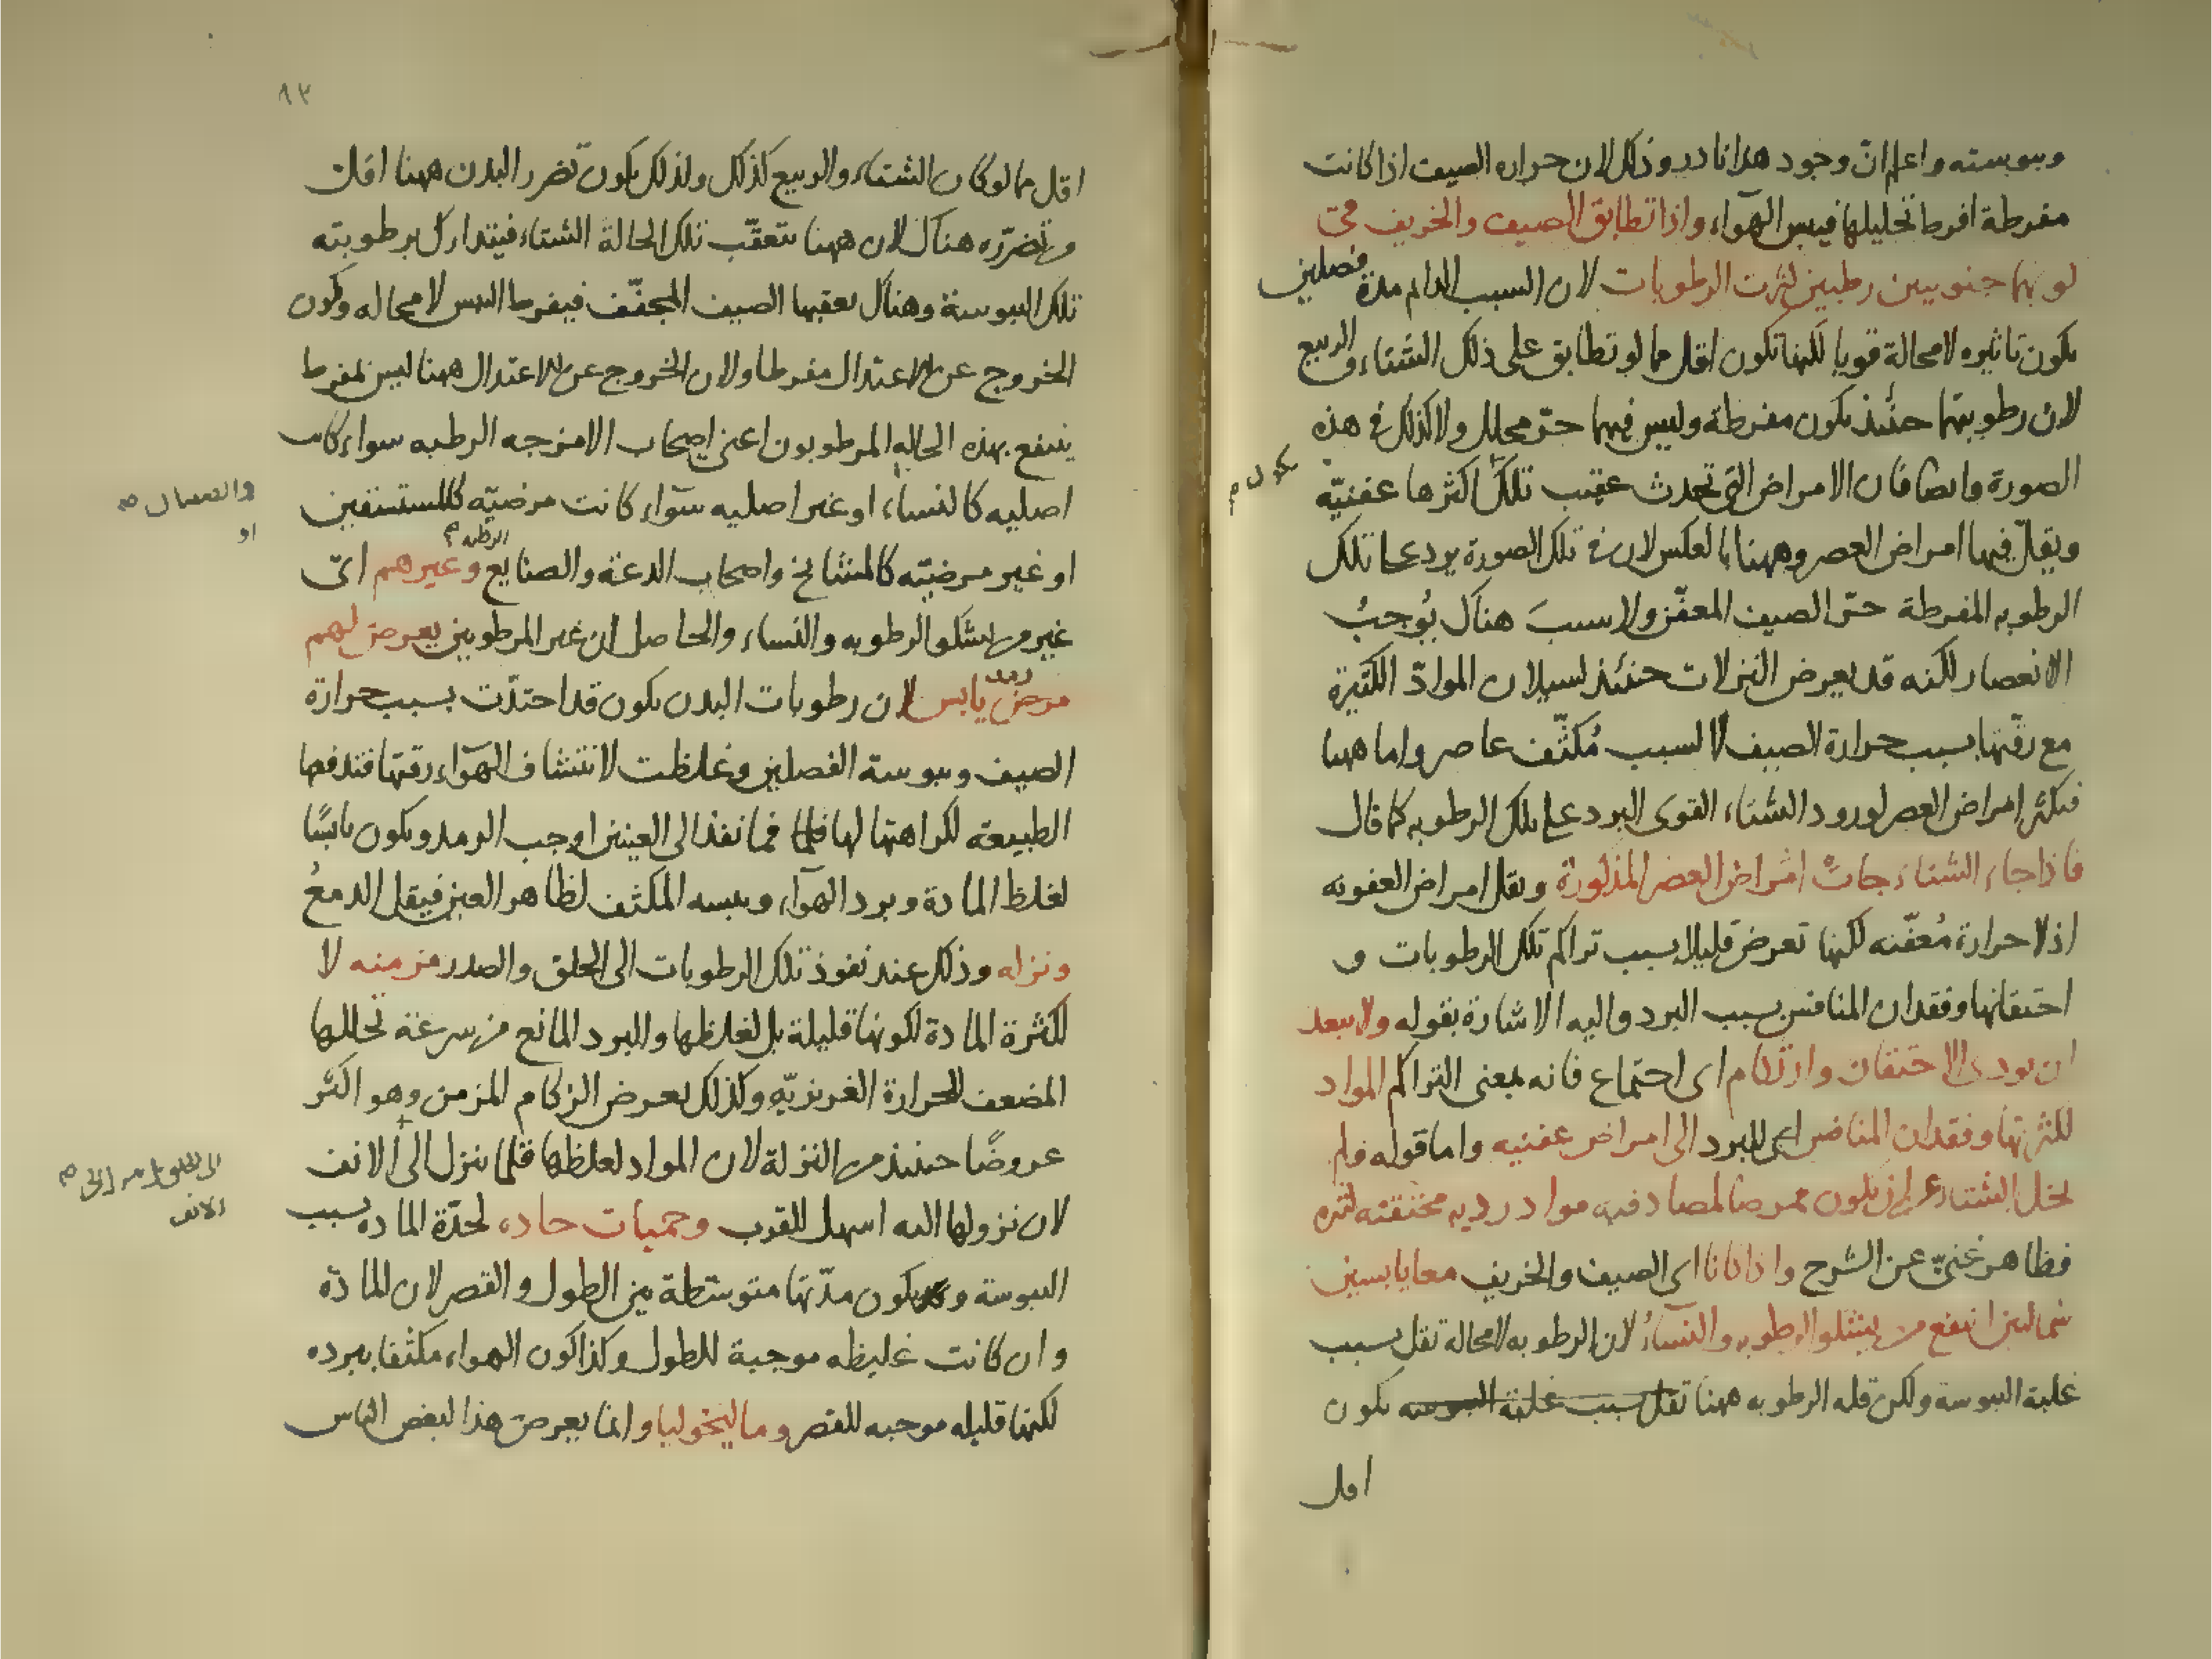 ويبوسته واعلم ان وجود هذا نادر وذلك لان حراره الصيف اذا كانت
مفرطة افرط تحليلها فيبس الهوآء واذا تطابق الصيف والخريف في
كونهما جنوبيين رطبين كثرت الرطوبات لان السبب الدايم مدة فصلين
يكون تاثيره لامحالة قويا لكنها تكون اقل مما لو تطابق على ذلك الشتاء والربيع
لان رطوبتهما حنئذ يكون مفرطة وليس فيهما حرّ محلل ولا كذلك في هذه
الصورة وايضا فان الامراض التي تحدث عقيب تلك اكثرها عفنيّه
يكون م
ويقلّ فيها امراض العصر وههنا بالعكس لان في تلك الصورة يرد على تلك
الرطوبه المفرطة حرّ الصيف المعفّن ولا سببَ هناك يُوجبُ
الانعصار لكنه قد يعرض النزلات حنئذ لسيلان الموادّ الكثيرة
مع رقّتها بسبب حرارة الصيف لا لسبب مُكثّف عاصر واما ههنا
فيكثر امراض العصر لورود الشتاء القوى البرد على تلك الرطوبه كما قال
فاذا جاء الشتاء جات امراض العصر المذكورة ويقل امراض العفونه
اذ لا حرارة مُعفّنه لكنها تعرض قليلا بسبب تراكم تلك الرطوبات و
احتقانها وفقدان المنافس بسبب البرد واليه الاشارة بقوله ولا يبعد
ان يودى الاحتقان وارتكام اى اجتماع فانه بمعنى التراكم المواد
لكثرتها وفقدان المنافس اى للبرد الى امراض عفنيه واما قوله ولم
يخل الشتاء عن ان يكون ممرضا لمصادفته مواد رديه محتقنه كثيره
فظاهر غنىّ عن الشرح واذا كانا اى الصيف والخريف معا يابسين
شماليين انتفع من يشكو الرطوبه والنسآءُ لان الرطوبه لامحالة تقل بسبب
غلبة اليبوسة ولكن قله الرطوبه ههنا تقل بسبب غلبة اليبوسه يكون
اقل
٩٣
اقل مما لو كان الشتاء والربيع كذلك ولذلك يكون تضرر البدن ههنا اقل
من تضرّره هناك لان ههنا يتعقّب تلك الحالة الشتاء فيتدارك برطوبته
تلك اليبوسة وهناك يعقبها الصيف المجفّف فيفرط اليبس لامحاله ولكون
الخروج عن الاعتدال مفرطا ولان الخروج عن الاعتدال ههنا ليس بمفرط
ينتفع بهذه الحالة المرطوبون اعنى اصحاب الامزجه الرطبه سواء كانت
اصليه كالنساء او غير اصليه سوآء كانت مرضيّه كالمستسقين
والصبيان م
او
او غير مرضيّه كالمشايخ واصحاب الدعة والصنايع وغيرهم اىّ
الرطبه م
غير من يشكو الرطوبه والنساء والحاصل ان غير المرطوبين يعرض لهم
مرض رمد يابس لان رطوبات البدن يكون قد احتدّت بسبب حرارة
الصيف ويبوسة الفصلين وغلظت لانتشاف الهوآء رقتها فتدفعها
الطبيعه لكراهتها لها فما نفذ الى العينين اوجب الرمد ويكون يابسًا
لغلظ المادة وبرد الهوآء ويبسه المكثف لظاهر العين فيقل الدمعُ
ونزله وذلك عند نفوذ تلك الرطوبات الى الحلق والصدر مزمنه لا
لكثرة المادة لكونها قليلة بل لغلظها والبرد المانع من سرعة تحللها
المضعف للحرارة الغريزيّه وكذلك يعرض الزكام المزمن وهو اكثر
عروضًا حنئذ من النزلة لان المواد لغلظها قلما ينزل الى الانف
الى الحلق م
الانف
لان نزولها اليه اسهل للقرب وحميات حاده لحدّة الماده بسبب
اليبوسة ويكون مدّتها متوسّطة بين الطول والقصر لان المادّة
وان كانت غليظه موجبة للطول وكذا كون الهواء مكثفا ببرده
لكنها قليله موجبه للقصر وماليخوليا وانما يعرض هذا لبعض الناس